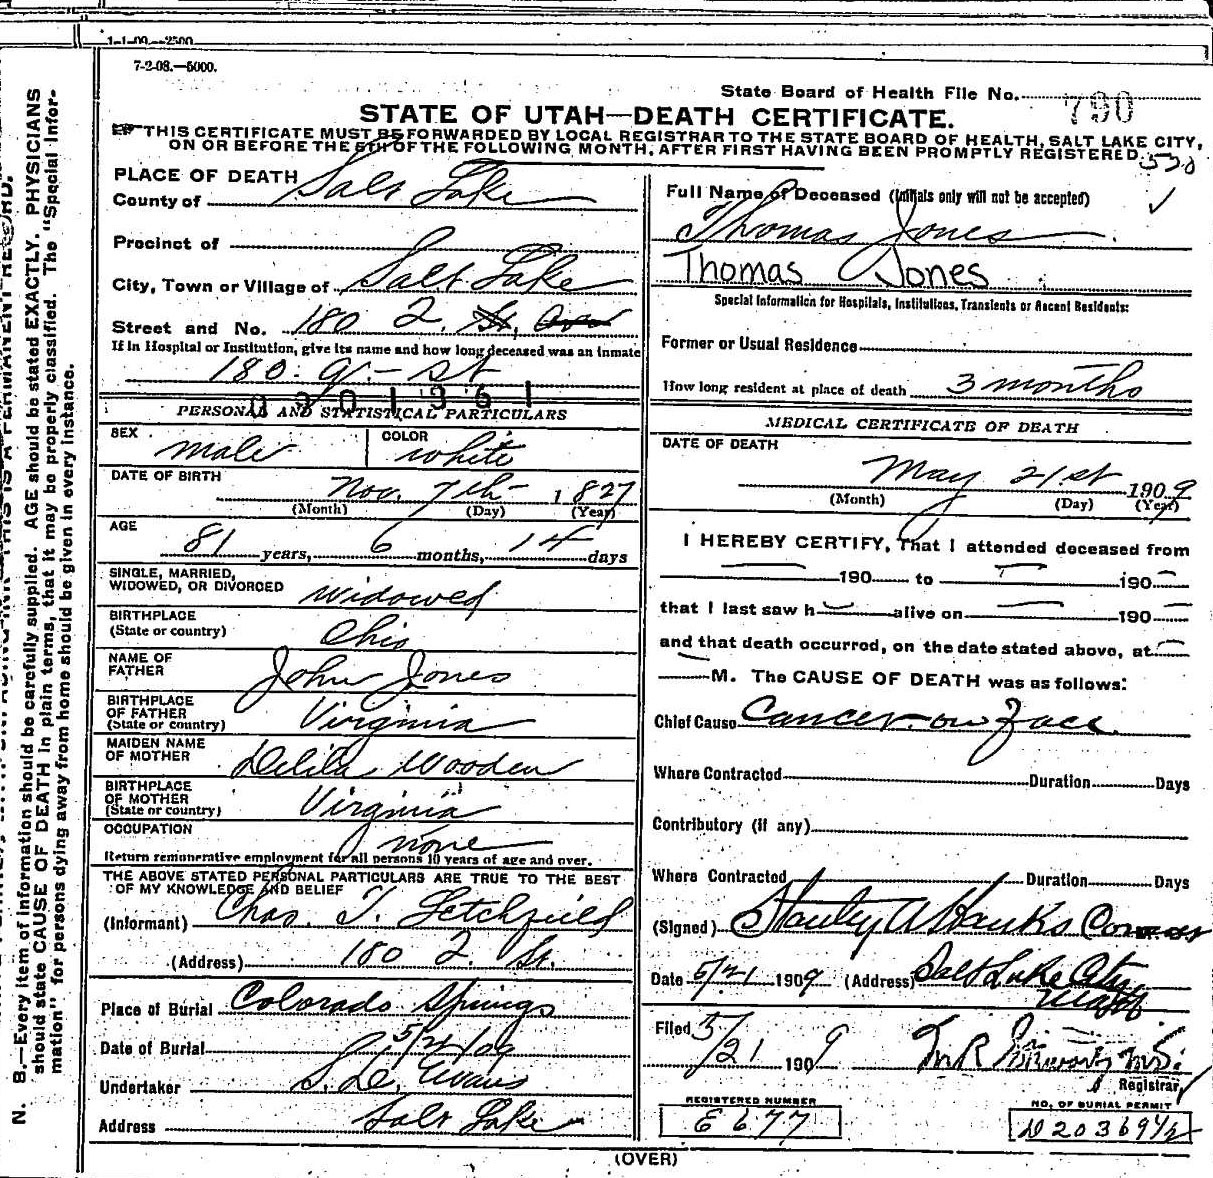 1-1-09.—2500
7-2-08.—5000.
State Board of Health File No. 790
STATE OF UTAH—DEATH CERTIFICATE.
THIS CERTIFICATE MUST BE FORWARDED BY LOCAL REGISTRAR TO THE STATE BOARD OF HEALTH, SALT LAKE CITY,
ON OR BEFORE THE 5TH OF THE FOLLOWING MONTH, AFTER FIRST HAVING BEEN PROMPTLY REGISTERED.
530
PLACE OF DEATH
County of Salt Lake
Precinct of
City, Town or Village of Salt Lake
Street and No. 180 Q. St.
If in Hospital or Institution, give its name and how long deceased was an inmate
180 Q — St
0301361
PERSONAL AND STATISTICAL PARTICULARS
SEX male COLOR white
DATE OF BIRTH Nov. 7th 1827
(Month) (Day) (Year)
AGE 81 years, 6 months, 14 days
SINGLE, MARRIED,
WIDOWED, OR DIVORCED widowed
BIRTHPLACE
(State or country) Ohio
NAME OF
FATHER John Jones
BIRTHPLACE
OF FATHER
(State or country) Virginia
MAIDEN NAME
OF MOTHER Delila Wooden
BIRTHPLACE
OF MOTHER
(State or country) Virginia
OCCUPATION none
Return remunerative employment for all persons 10 years of age and over.
THE ABOVE STATED PERSONAL PARTICULARS ARE TRUE TO THE BEST
OF MY KNOWLEDGE AND BELIEF
(Informant) Chas. T. Letchfield
(Address) 180 Q. St.
Place of Burial Colorado Springs
Date of Burial 5/21/09
Undertaker S. D. Evans
Address Salt Lake
Full Name of Deceased (Initials only will not be accepted)
Thomas Jones
Thomas Jones
Special Information for Hospitals, Institutions, Transients or Recent Residents:
Former or Usual Residence
How long resident at place of death 3 months
MEDICAL CERTIFICATE OF DEATH
DATE OF DEATH
May 21st 1909
(Month) (Day) (Year)
I HEREBY CERTIFY, That I attended deceased from
190 to 190
that I last saw h alive on 190
and that death occurred, on the date stated above, at
M. The CAUSE OF DEATH was as follows:
Chief Cause Cancer on Face
Where Contracted Duration Days
Contributory (if any)
Where Contracted Duration Days
(Signed) Stanley A Hanks Coroner
Date 5/21 1909 (Address) Salt Lake City
Utah
Filed 5/21 1909 M.D.
Registrar
REGISTERED NUMBER
E 677
NO. OF BURIAL PERMIT
D 20369 1/2
(OVER)
N. B.—Every item of information should be carefully supplied. AGE should be stated EXACTLY. PHYSICIANS
should state CAUSE OF DEATH in plain terms, that it may be properly classified. The "Special Infor-
mation" for persons dying away from home should be given in every instance.